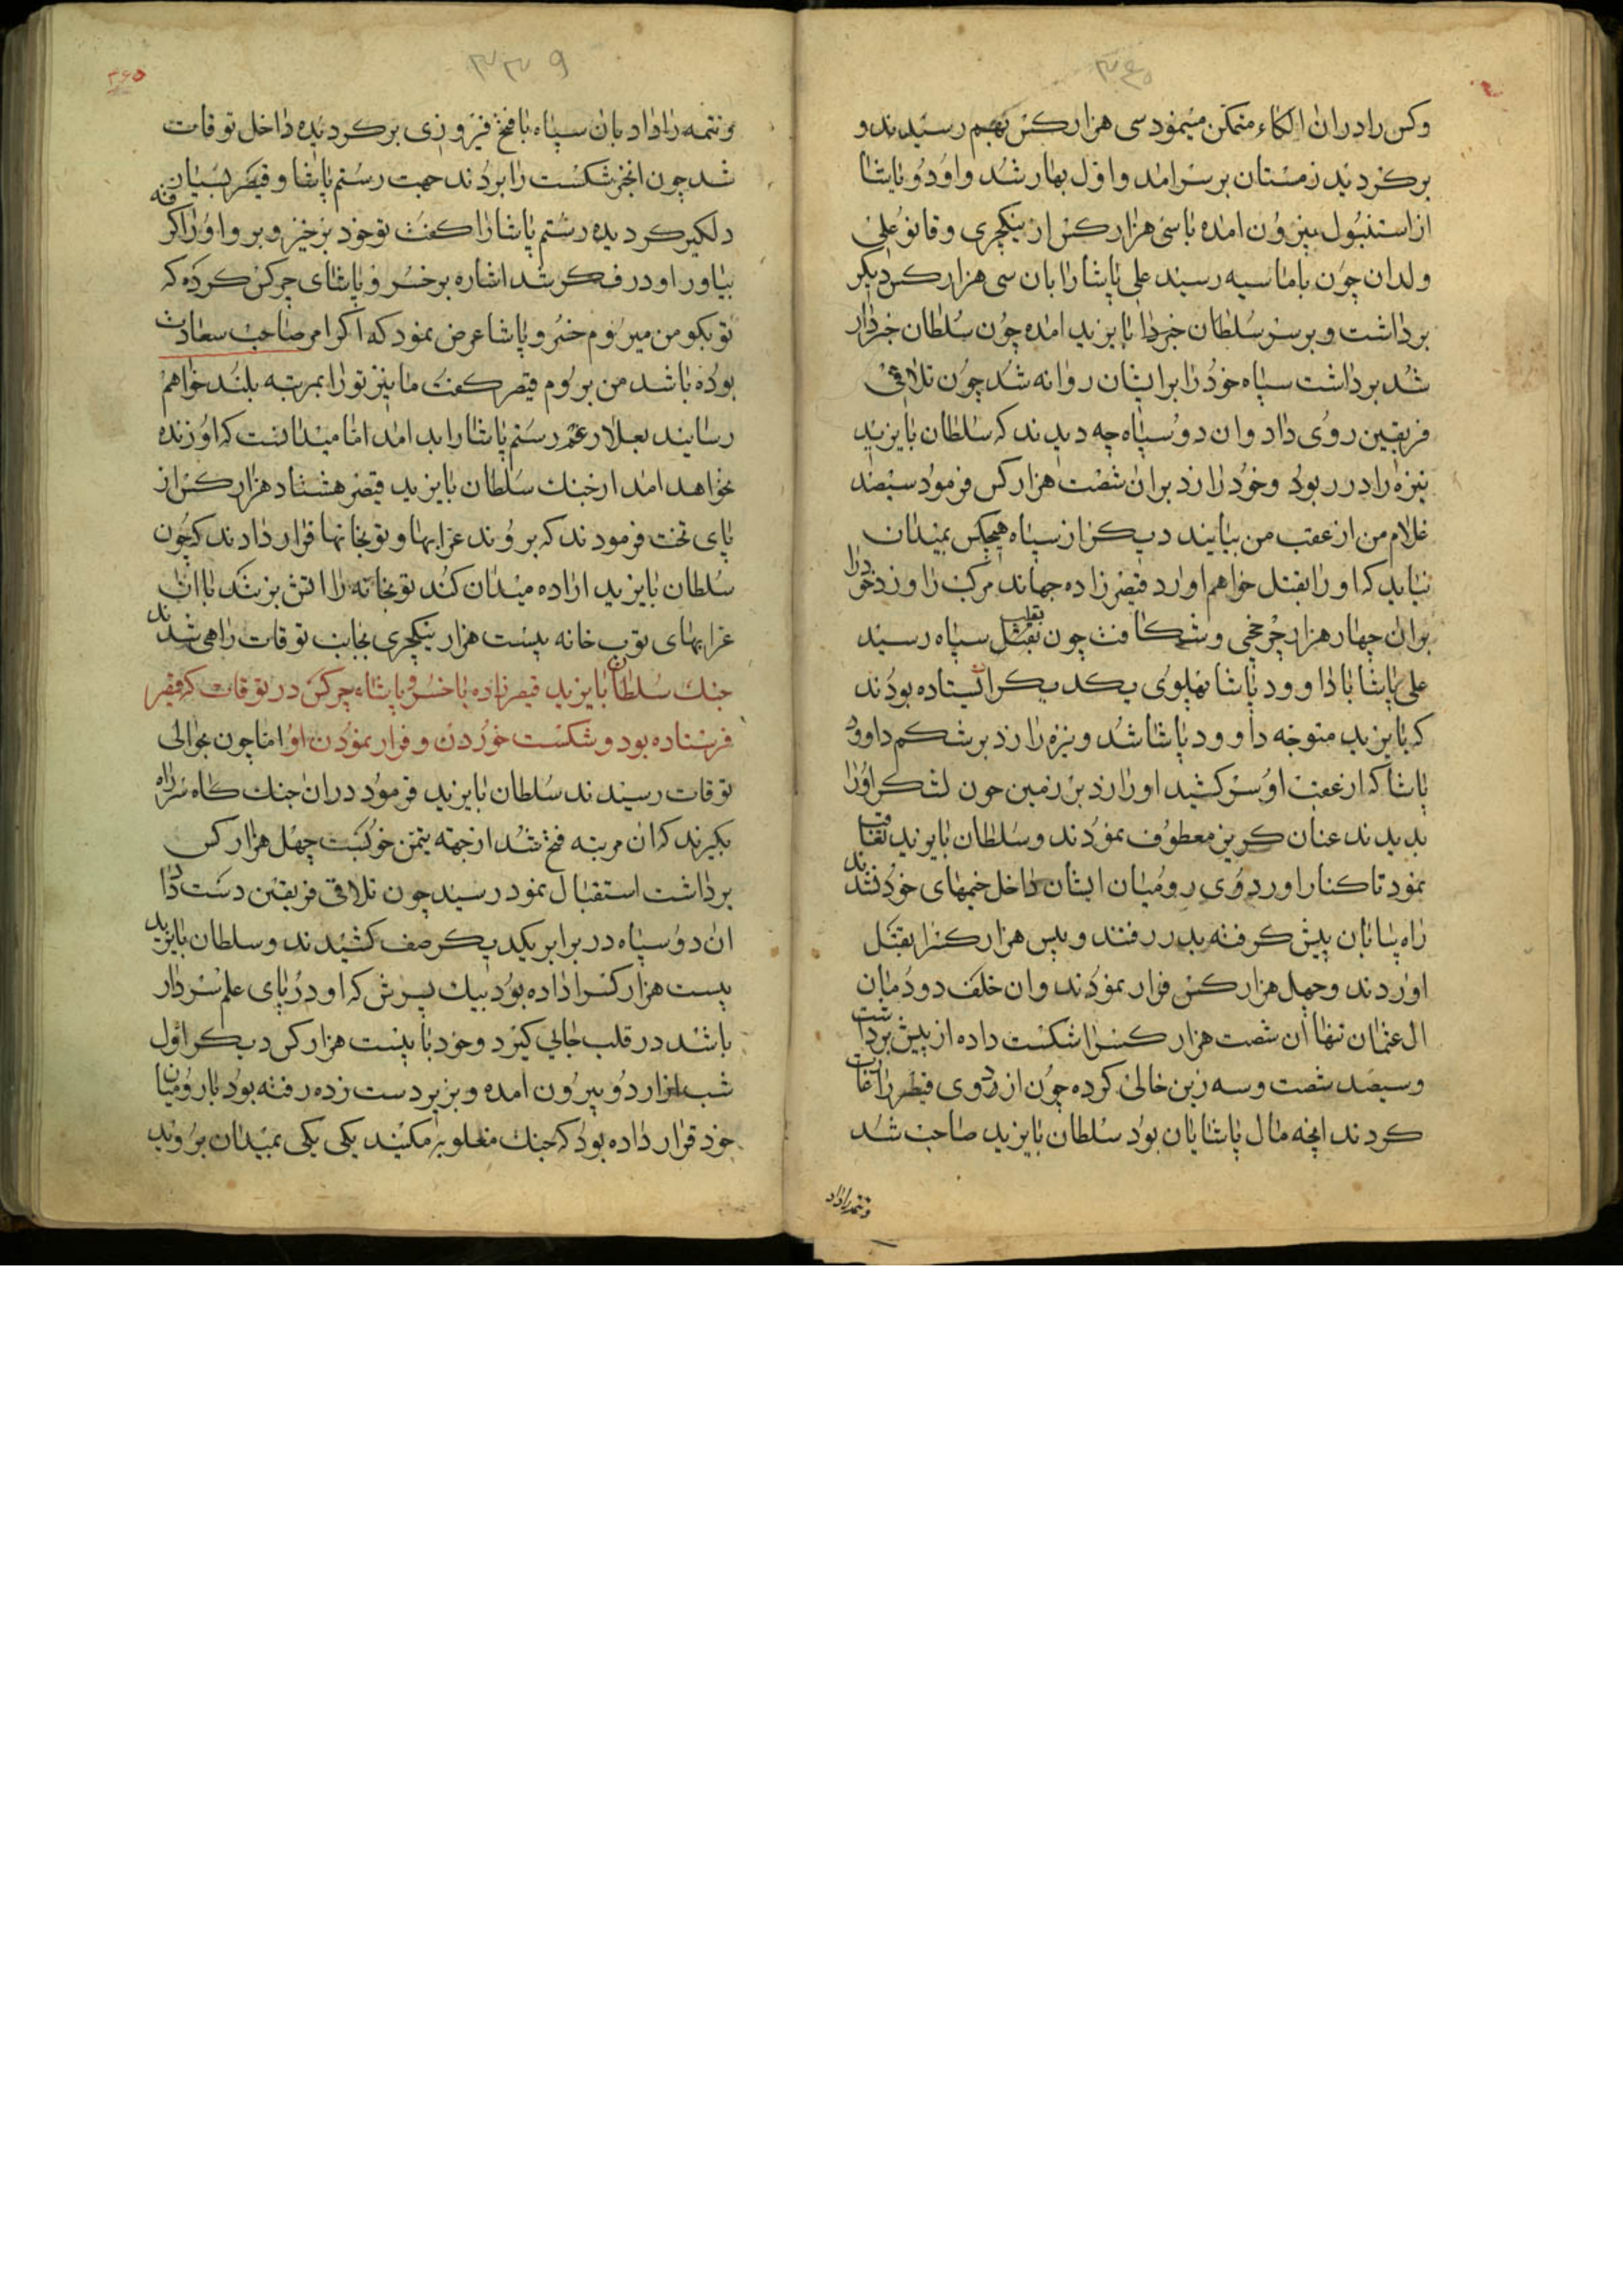 ۳۴۰
وکس را دران الکاء متمکن مینمود سی هزار کس بهم رسیدند و
برکردید زمستان برسرامد واول بهار شد و اودو پاشا
از استنبول بیرون امده با سی هزار کس از ینکچری وقانوعلی
ولدان چون باماسیه رسید علی پاشا را بان سی هزار کس دیکر
برداشت و برسر سلطان خبردا بایزید امده چون سلطان خبردار
شد برداشت سپاه خود را برایشان روانه شد چون تلاقی
فریقین روی داد وان دو سپاه چه دیدند که سلطان بایزید
نیزه را در ربود وخود را زد بران شصت هزار کس فرمود سیصد
غلام من از عقب من بیایند دیکر از سپاه هیچکس بمیدان
نیاید که او را بقتل خواهم اورد قیصر زاده جهاند مرکب را وزد خود را
بران چهار هزار چرخچی وشکافت چون بقلب سپاه رسید
علی پاشا با داوود پاشا بپهلوی یکدیکر ایستاده بودند
که بایزید متوجه داوود پاشا شد ونیزه را زد برشکم داوود
پاشا که از عقب او سر کشید اورا زد بر زمین چون لشکر اورا
بدیدند عنان کریز معطوف نمودند وسلطان بایزید تعاقب
نمود تا کنار اوردوی رومیان ایشان داخل خیمهای خود نشدند
راه بیابان پیش کرفته بدر رفتند وبیس هزار کسرا بقتل
اوردند وچهل هزار کس فرار نمودند وان خلف دودمان
ال عثمان تنها ان شصت هزار کسرا شکست داده از پیش برداشت
وسیصد شصت وسه زین خالی کرده چون از اردوی قیصر را غارت
کردند انچه مال پاشایان بود سلطان بایزید صاحب شد
وتتمه راداد
۳۳۹
۳۶۵
وتتمه را داد بان سپاه با فتح فیروزی برکردیده داخل توقات
شد چون انخبر شکست را بردند جهت رستم پاشا وقیصر بسیار
دلکیر کردیده رستم پاشا را کفت توخود برخیز وبرو اورا کرفته
بیاور او در فکر شد اشاره برخسرو پاشای چرکس کرده که
تو بکو من میروم خسرو پاشا عرض نمود که اکر امر صاحب سعادت
بوده باشد من بروم قیصر کفت ما نیز تو را بمرتبه بلند خواهم
رسانید بعلا رغم رستم پاشا را بد امد اما میدانست که او زنده
نخواهد امد از جنک سلطان بایزید قیصر هشتاد هزار کس از
پای تخت فرمودند که بروند عرابها وتوپخانها قرار دادند که چون
سلطان بایزید اراده میدان کند توپخانه را اتش بزنند با ان
عرابهای توپ خانه بیست هزار ینکچری بجانب توقات راهی شدند
جنک سلطان بایزید قیصر زاده با خسرو پاشاء چرکس در توقات که قیصر
فرستاده بود وشکست خوردن و فرار نمودن او اما چون بحوالی
توقات رسیدند سلطان بایزید فرمود دران جنک کاه سر راه
بکیرند که ان مرتبه فتح شد از جهته یتمن خو کسبت چهل هزار کس
برداشت استقبال نمود رسید چون تلاقی فریقین دست داد
ان دو سپاه در برابر یکدیکر صف کشیدند وسلطان بایزید
بیست هزار کسرا داده بود بیک پسرش که او در پای علم سردار
باشد در قلب جای کیرد وخود با بیست هزار کس دیکر اول
شب از اردو بیرون امده وبزیر دست زده رفته بود بارومیان
خود قرار داده بود که جنک مغلوبه مکنید یکی یکی بمیدان بروید